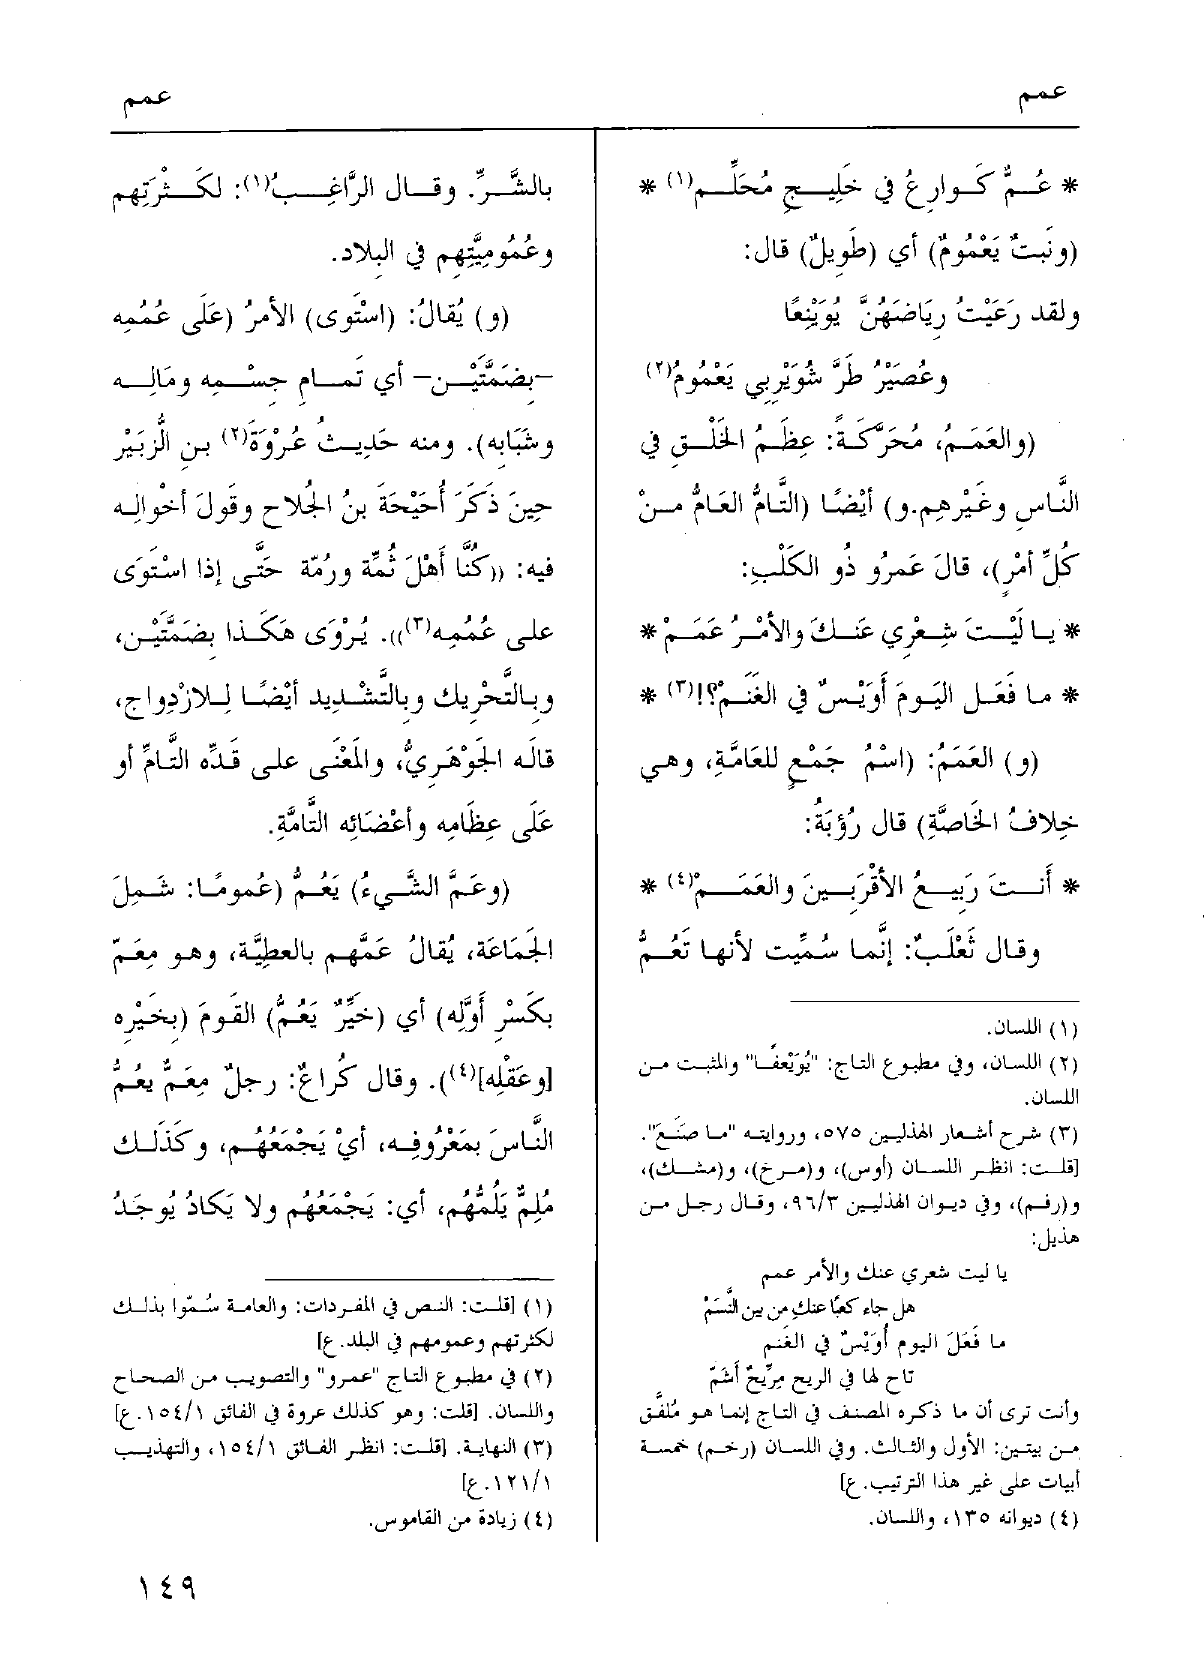 عمم
عمم
* عُمٌّ كَوارِعُ في خَلِيجٍ مُحَلِّمِ(١) *
(ونَبتٌ يَعْمُومٌ) أي (طَوِيلٌ) قال:
ولقد رَعَيْتُ رِيَاضَهُنَّ يُوَيْنِعًا
وعُصَيْرُ طَرَّ شُوَيْرِبي يَعْمُومُ(٢)
(والعَمَمُ، مُحَرَّكَةً: عِظَمُ الخَلْقِ في
النَّاسِ وغَيْرِهِم.و) أيْضًا (التَّامُّ العَامُّ مِنْ
كُلِّ أمْرٍ)، قالَ عَمرُو ذُو الكَلْبِ:
* يا لَيْتَ شِعْرِي عَنكَ والأمْرُ عَمَمْ *
* ما فَعَلَ اليَومَ أُوَيْسٌ في الغَنَمْ؟!(٣) *
(و) العَمَمُ: (اسْمُ جَمْعٍ للعَامَّةِ، وهي
خِلافُ الخَاصَّةِ) قال رُؤبَةُ:
* أنتَ رَبِيعُ الأقْرَبِينَ والعَمَمْ(٤) *
وقال ثَعْلَبٌ: إنَّما سُمِّيت لأنها تَعُمُّ
(١) اللسان.
(٢) اللسان، وفي مطبوع التاج: "يُوَيْعفًا" والمثبت من
اللسان.
(٣) شرح أشعار الهذليين ٥٧٥، وروايته "ما صَنَع".
[قلت: انظر اللسان (أوس)، و(مرخ)، و(مشك)،
و(رقم)، وفي ديوان الهذليين ٩٦/٣، وقال رجل من
هذيل:
يا ليت شعري عنك والأمر عمم
هل جاء كعبًا عنكِ من بين النَّسَمْ
ما فَعَلَ اليوم أُوَيْسٌ في الغَنم
تاح لها في الريح مِرِّيخٌ أشَمّ
وأنت ترى أن ما ذكره المصنف في التاج إنما هو مُلفَّق
من بيتين: الأول والثالث. وفي اللسان (رخم) خمسة
أبيات على غير هذا الترتيب.ع]
(٤) ديوانه ١٣٥، واللسان.
بالشَّرِّ. وقال الرَّاغِبُ(١): لكَثْرَتِهِم
وعُمُومِيَّتِهِم في البلاد.
(و) يُقالُ: (اسْتَوى) الأمرُ (عَلَى عُمُمِه
–بِضَمَّتَيْنِ– أي تَمامِ جِسْمِه ومَالِه
وشَبَابِه). ومنه حَدِيثُ عُرْوَةَ(٢) بنِ الزُّبَيْر
حِينَ ذَكَرَ أُحَيْحَةَ بنُ الجُلاحِ وقَولَ أخْوالِه
فيه: ((كُنَّا أَهْلَ ثُمِّة ورُمّة حَتَّى إذا اسْتَوَى
على عُمُمِه(٣))). يُرْوَى هَكَذا بِضَمَّتَيْن،
وبِالتَّحْرِيك وبِالتَّشْدِيد أيْضًا لِلازْدِواج،
قالَه الجَوْهَرِيُّ، والمَعْنَى على قَدِّه التَّامِّ أو
عَلَى عِظَامِه وأعْضَائِه التَّامَّةِ.
(وعَمَّ الشَّيءُ) يَعُمُّ (عُمومًا: شَمِلَ
الجَمَاعَة، يُقالُ عَمَّهم بالعطِيَّة، وهو مِعَمّ
بكَسْرِ أوَّلِه) أي (خَيِّرٌ يَعُمُّ) القَومَ (بِخَيْرِه
[وعَقْلِه](٤)). وقال كُراعٌ: رجلٌ مِعَمٌّ يعُمُّ
النَّاسَ بمَعْرُوفِه، أيْ يَجْمَعُهُم، وكَذَلك
مُلِمٌّ يَلُمُّهُم، أي: يَجْمَعُهُم ولا يَكادُ يُوجَدُ
(١) [قلت: النص في المفردات: والعامة سُمّوا بذلك
لكثرتهم وعمومهم في البلد.ع]
(٢) في مطبوع التاج "عمرو" والتصويب من الصحاح
واللسان. [قلت: وهو كذلك عروة في الفائق ١٥٤/١.ع]
(٣) النهاية. [قلت: انظر الفائق ١٥٤/١، والتهذيب
١٢١/١.ع]
(٤) زيادة من القاموس.
١٤٩